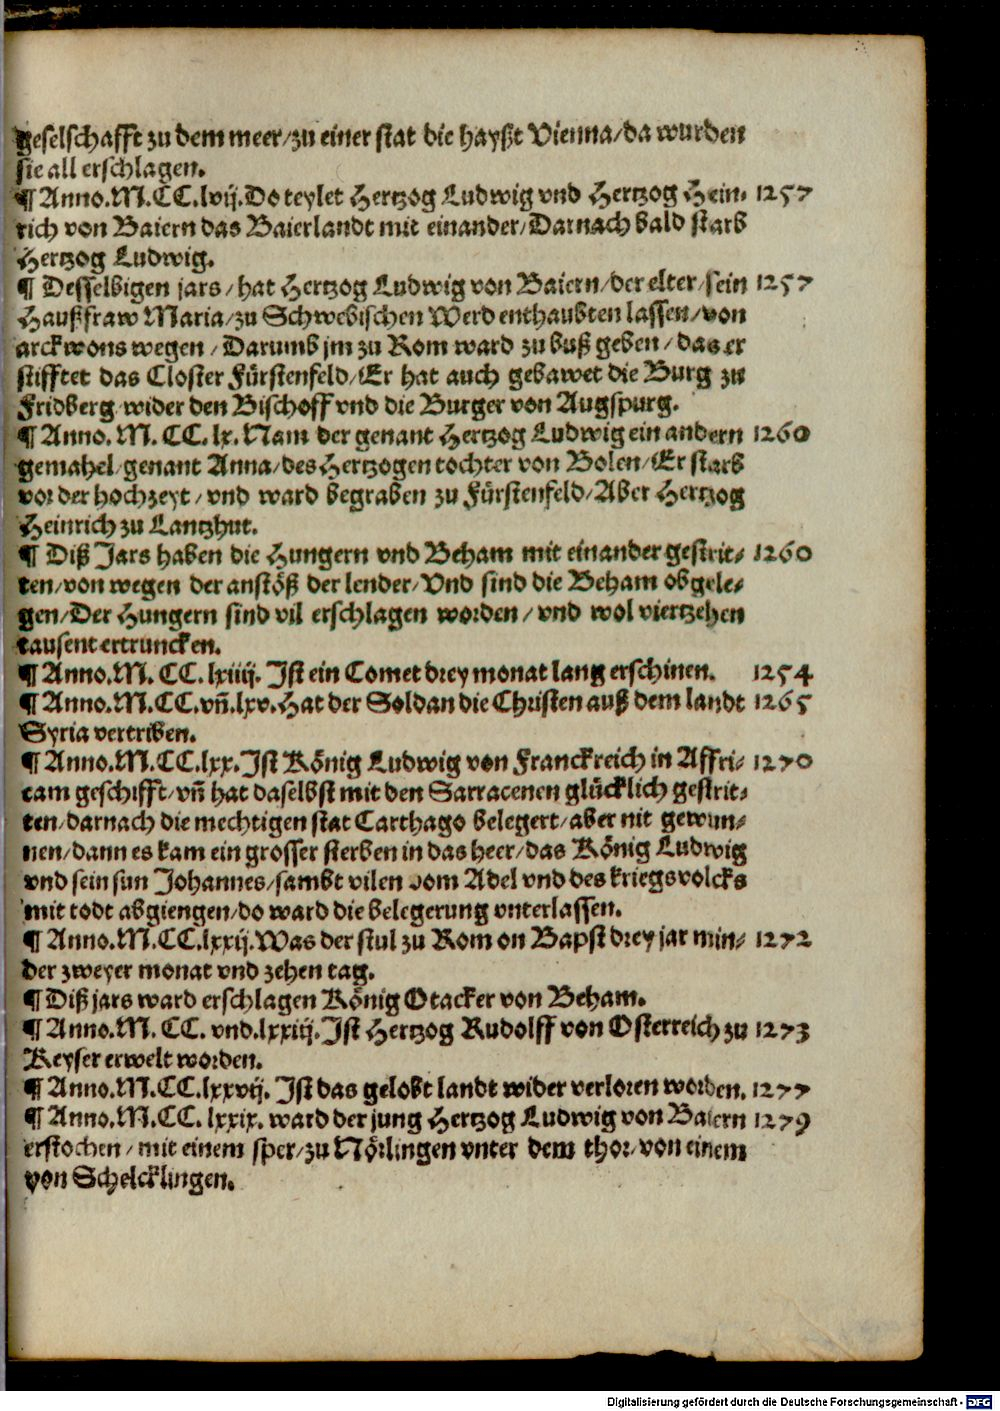 geselschafft zu dem meer/zu einer stat die hayßt Vienna/da wurden
sie all erschlagen.
¶ Anno.M.CC.lvij.Do teylet Hertzog Ludwig vnd Hertzog Hein- 1257
rich von Baiern das Baierlandt mit einander/Darnach bald starb
Hertzog Ludwig.
¶ Desselbigen jars/hat Hertzog Ludwig von Baiern/der elter/sein 1257
Haußfraw Maria/zu Schwebischen Werd enthaubten lassen/von
arckwons wegen/Darumb jm zu Rom ward zu buß geben/das er
stifftet das Closter Fürstenfeld/Er hat auch gebawet die Burg zu
Fridberg/wider den Bischoff vnd die Burger von Augspurg.
¶ Anno. M. CC. lx. Nam der genant Hertzog Ludwig ein andern 1260
gemahel/genant Anna/des Hertzogen tochter von Bolen/Er starb
vor der hochzeyt/vnd ward begraben zu Fürstenfeld/Aber Hertzog
Heinrich zu Lantzhut.
¶ Diß Jars haben die Hungern vnd Beham mit einander gestrit- 1260
ten/von wegen der anstöß der lender/Vnd sind die Beham obgele-
gen/Der Hungern sind vil erschlagen worden/vnd wol viertzehen
tausent ertruncken.
¶ Anno.M. CC. lxiiij. Ist ein Comet drey monat lang erschinen. 1254
¶ Anno.M.CC.vñ.lxv.Hat der Soldan die Christen auß dem landt 1265
Syria vertriben.
¶ Anno.M.CC.lxx.Ist König Ludwig von Franckreich in Affri- 1270
cam geschifft/vñ hat daselbst mit den Sarracenen glücklich gestrit-
ten/darnach die mechtigen stat Carthago belegert/aber nit gewun-
nen/dann es kam ein grosser sterben in das heer/das König Ludwig
vnd sein sun Johannes/sambt vilen vom Adel vnd des kriegsvolcks
mit todt abgiengen/do ward die belegerung vnterlassen.
¶ Anno.M.CC.lxxij.Was der stul zu Rom on Bapst drey jar min- 1272
der zweyer monat vnd zehen tag.
¶ Diß jars ward erschlagen König Otacker von Beham.
¶ Anno.M. CC. vnd.lxxiij.Ist Hertzog Rudolff von Osterreich zu 1273
Keyser erwelt worden.
¶ Anno.M.CC.lxxvij. Ist das gelobt landt wider verloren worden. 1277
¶ Anno.M.CC. lxxix. ward der jung Hertzog Ludwig von Baiern 1279
erstochen/mit einem sper/zu Nörlingen vnter dem thor/von einem
von Schelcklingen.
Digitalisierung gefördert durch die Deutsche Forschungsgemeinschaft - DFG